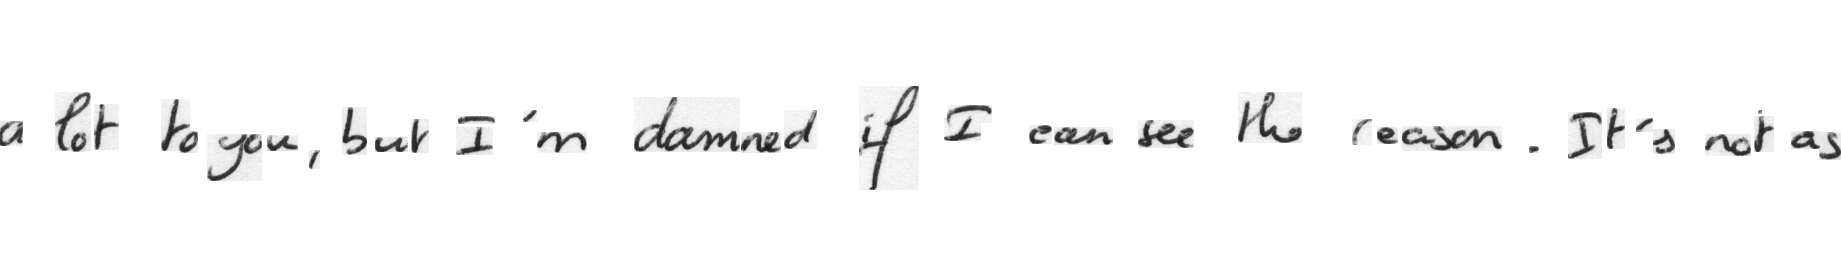 a lot to you, but I'm damned if I can see the reason. It's not as